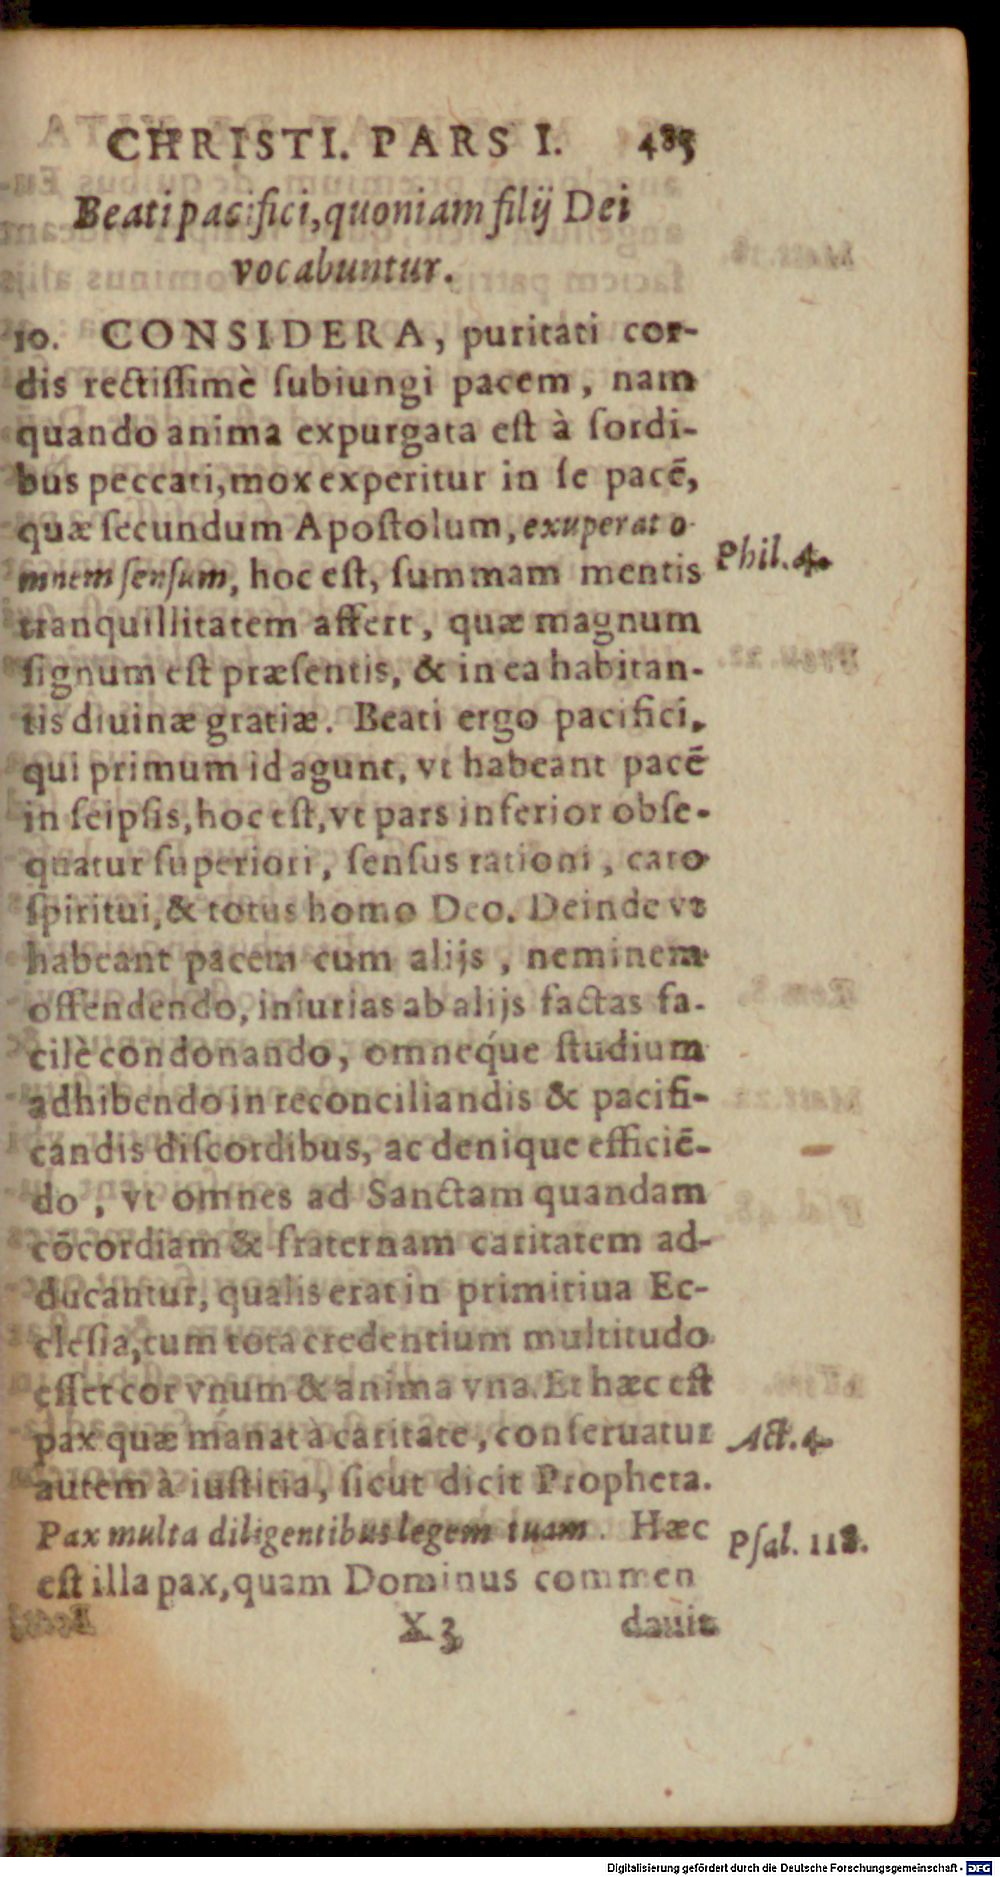 CHRISTI. PARS I. 485
Beati pacifici, quoniam filij Dei
vocabuntur.
10. CONSIDERA, puritati cor-
dis rectissimè subiungi pacem, nam
quando anima expurgata est à sordi-
bus peccati, mox experitur in se pacē,
quæ secundum Apostolum, exuperat o
mnem sensum, hoc est, summam mentis
Phil. 4.
tranquillitatem affert, quæ magnum
signum est præsentis, & in ea habitan-
tis diuinæ gratiæ. Beati ergo pacifici,
qui primum id agunt, vt habeant pacē
in seipsis, hoc est, vt pars inferior obse-
quatur superiori, sensus rationi, caro
spiritui, & totus homo Deo. Deinde vt
habeant pacem cum alijs, neminem
offendendo, iniurias ab alijs factas fa-
cilè condonando, omneq́ue studium
adhibendo in reconciliandis & pacifi-
candis discordibus, ac denique efficiē-
do, vt omnes ad Sanctam quandam
cōcordiam & fraternam caritatem ad-
ducantur, qualis erat in primitiua Ec-
clesia, cum tota credentium multitudo
esset cor vnum & anima vna. Et hæc est
pax quæ manat à caritate, conseruatur
Act. 4.
autem à iustitia, sicut dicit Propheta.
Pax multa diligentibus legem tuam. Hæc
Psal. 118.
est illa pax, quam Dominus commen
X 3 dauit
Digitalisierung gefördert durch die Deutsche Forschungsgemeinschaft - DFG